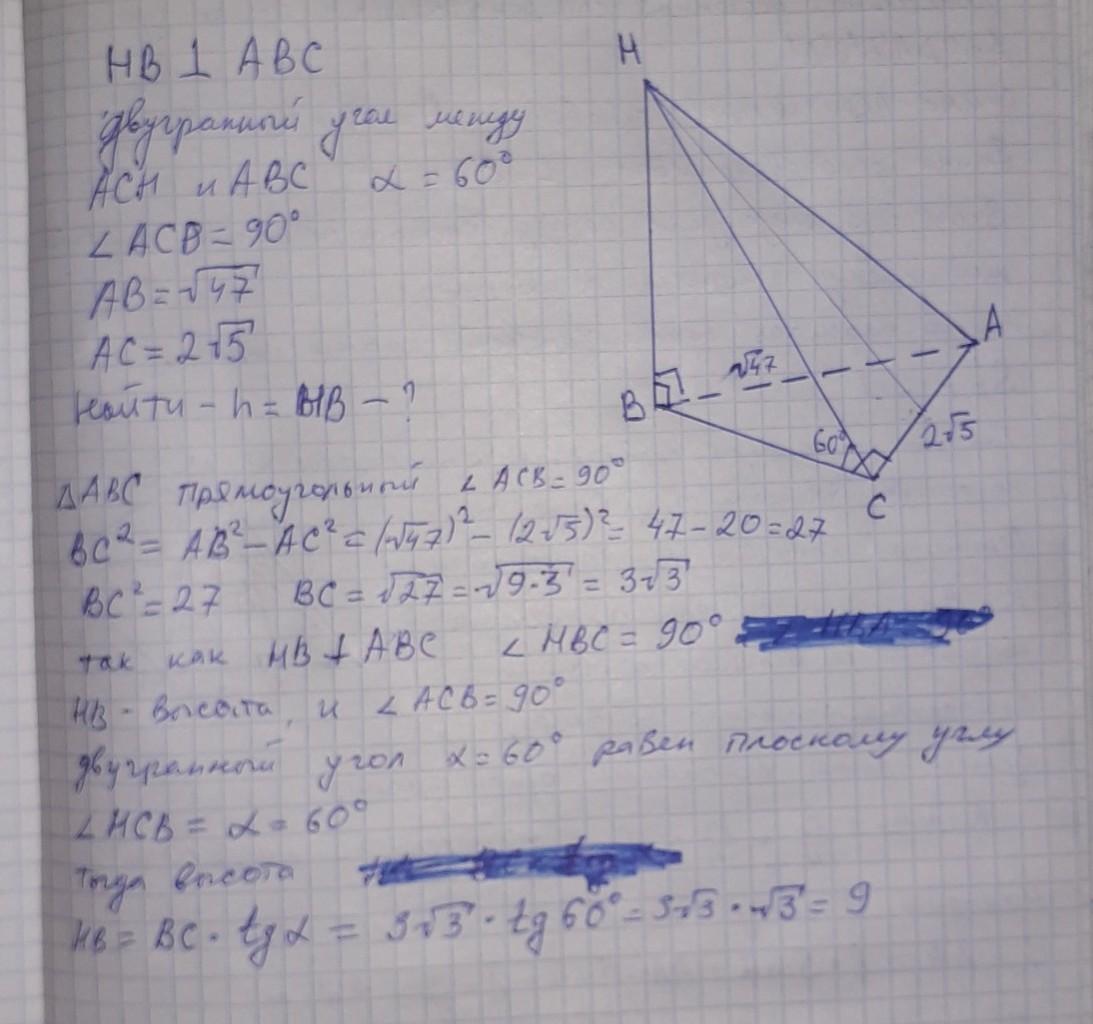 HB ⊥ ABC
двугранный угол между
ACH и ABC α = 60°
∠ ACB = 90°
AB = √47
AC = 2√5
Найти - h = HB - ?
H
A
B
C
√47
60°
2√5
△ABC прямоугольный ∠ ACB = 90°
BC² = AB² - AC² = (√47)² - (2√5)² = 47 - 20 = 27
BC² = 27 BC = √27 = √9·3 = 3√3
так как HB ⊥ ABC ∠ HBC = 90°
HB - высота, и ∠ ACB = 90°
двугранный угол α = 60° равен плоскому углу
∠ HCB = α = 60°
тогда высота
HB = BC · tg α = 3√3 · tg 60° = 3√3 · √3 = 9